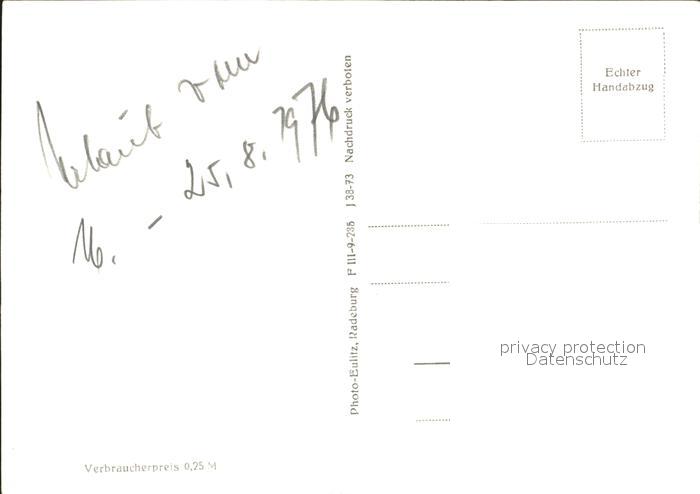 Urlaub vom
16. - 25. 8. 1976
Verbraucherpreis 0,25 M
Photo-Eulitz, Radeburg F III-9-238 J 38-73 Nachdruck verboten
Echter
Handabzug
privacy protection
Datenschutz